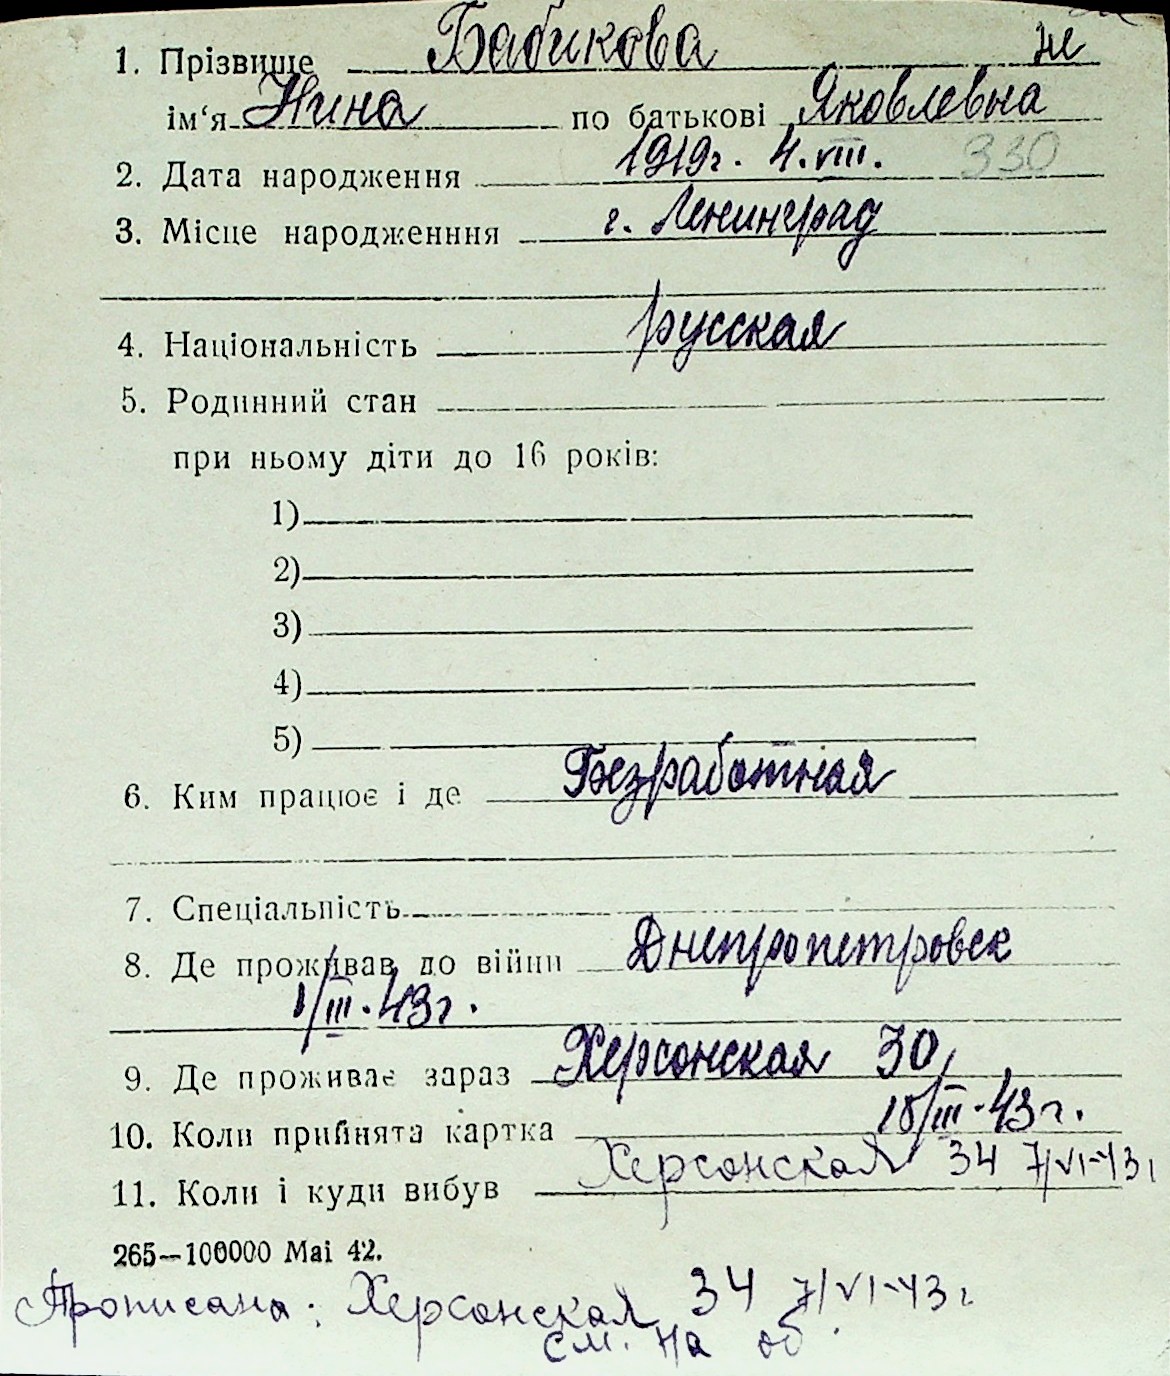 1. Прізвище Бабикова не
ім‘я Нина по батькові Яковлевна
2. Дата народження 1919г. 4.VIII. 330
3. Місце народженння г. Ленинград
4. Національність русская
5. Родинний стан
при ньому діти до 16 років:
1)
2)
3)
4)
5)
6. Ким працює і де Безработная
7. Спеціальність
8. Де проживав до війни Днепропетровск
1/III-43г.
9. Де проживає зараз Херсонская 30,
10. Коли прийнята картка 18/III-43г.
11. Коли і куди вибув Херсонская 34 7/VI-43г
265—100000 Mai 42.
Прописана: Херсонская 34 7/VI-43г
см. на об.